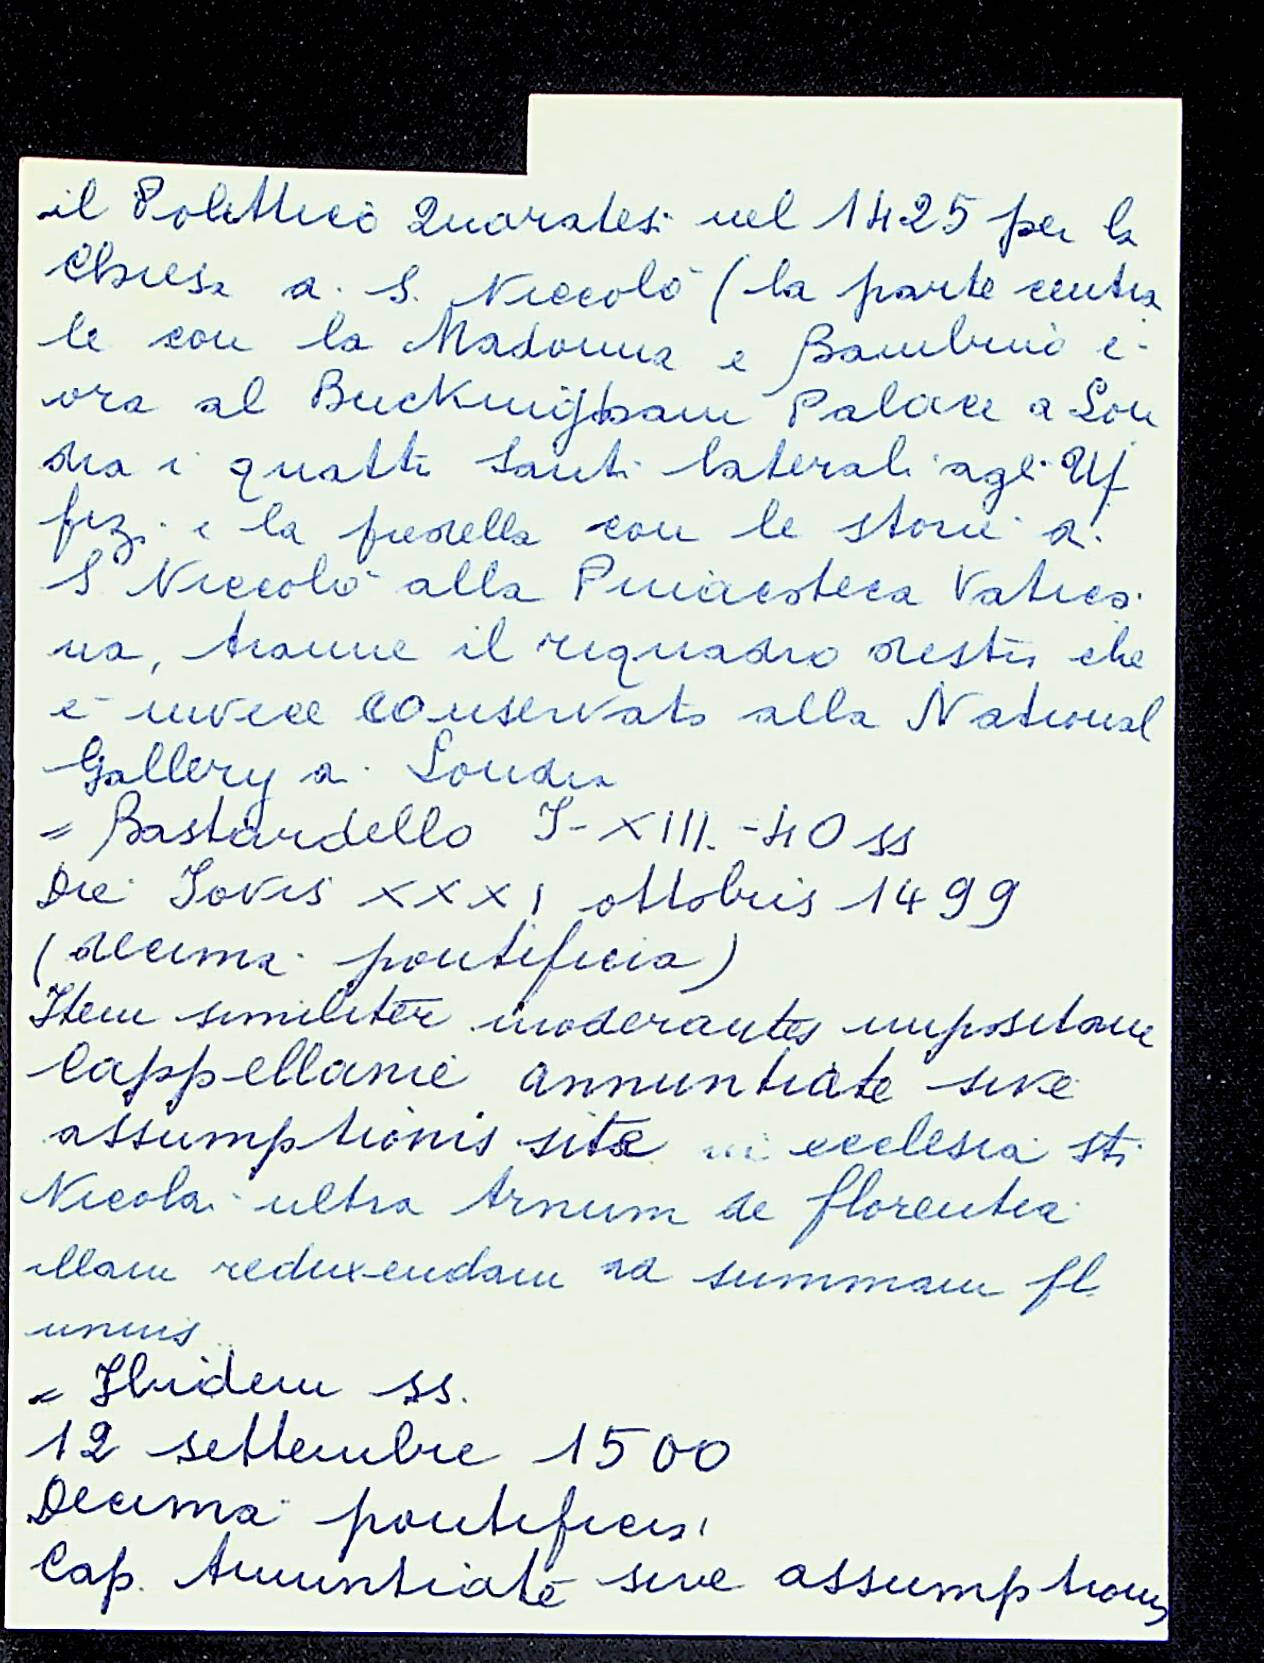 il Polittico Quaratesi nel 1425 per la
Chiesa di S. Niccolò (la parte centra
le con la Madonna e Bambino è
ora al Buckingham Palace a Lon
dra i quattro Santi laterali agli Uf
fizi e la predella con le storie di
S Niccolò alla Pinacoteca Vatica
na, tranne il riquadro destro che
è invece conservato alla National
Gallery di Londra
= Bastardello I-XIII.-40 ss
Die Jovis XXXI ottobris 1499
(decima pontificia)
Item similiter moderantes impositam
Cappellanie annuntiate sive
assumptionis site in ecclesia sti
Nicolai ultra Arnum de florentia
illam reduxendam ad summam fl.
unius
= Ibidem ss.
12 settembre 1500
Decima pontificia
Cap. Annuntiate sive assumptionis